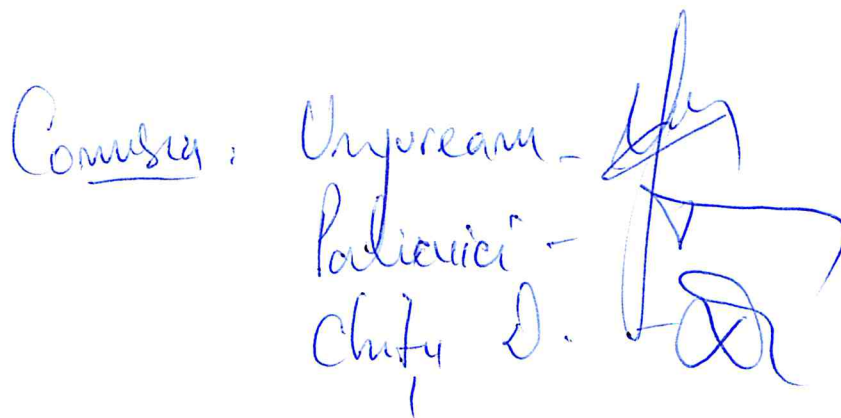 Comisia: Ungureanu -
Palienici -
Chițu D. -